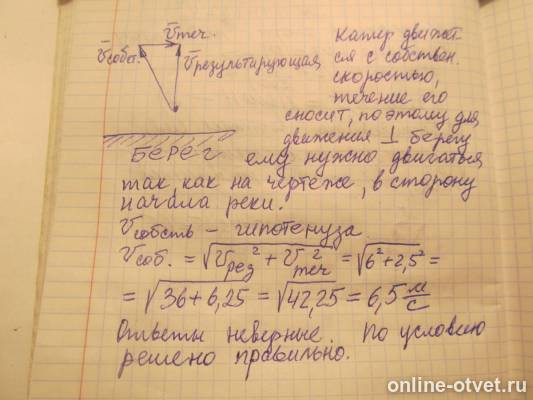 V̄теч.
V̄собст.
V̄результирующая
Катер движет
ся с собствен.
скоростью,
течение его
сносит, поэтому для
движения ⊥ берегу
Берег ему нужно двигаться
так, как на чертеже, в сторону
начала реки.
V̄собств – гипотенуза
V̄соб. = √(V̄рез² + V̄теч²) = √(6² + 2,5²) =
= √(36+6,25) = √42,25 = 6,5 м/с
Ответы неверные. По условию
решено правильно.
online-otvet.ru